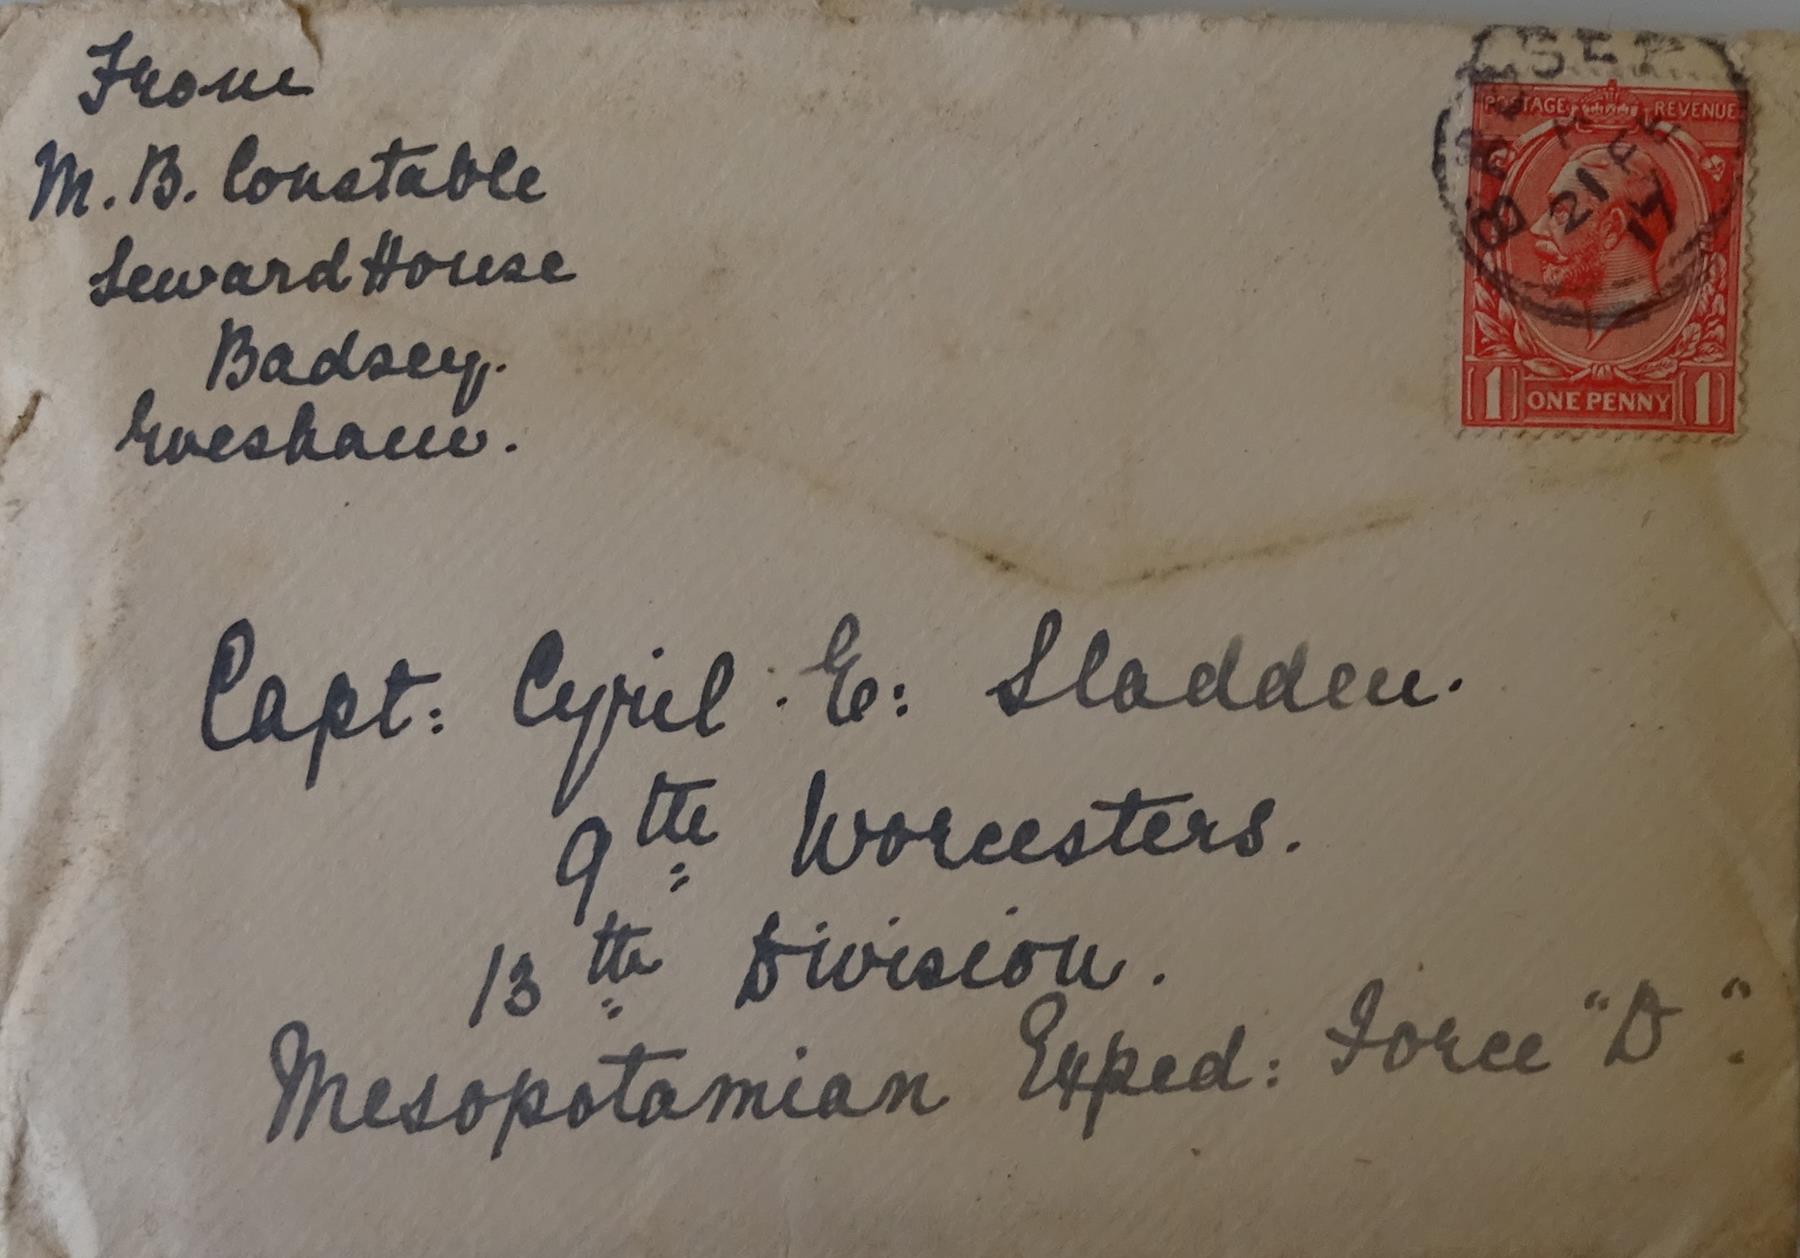 From
M. B. Constable
Seward House
Badsey.
Evesham.
BADSEY
21 FE
17
POSTAGE REVENUE
1 ONE PENNY 1
Capt: Cyril . E: Sladden.
9th Worcesters.
13th Division.
Mesopotamian Exped: Force "D".